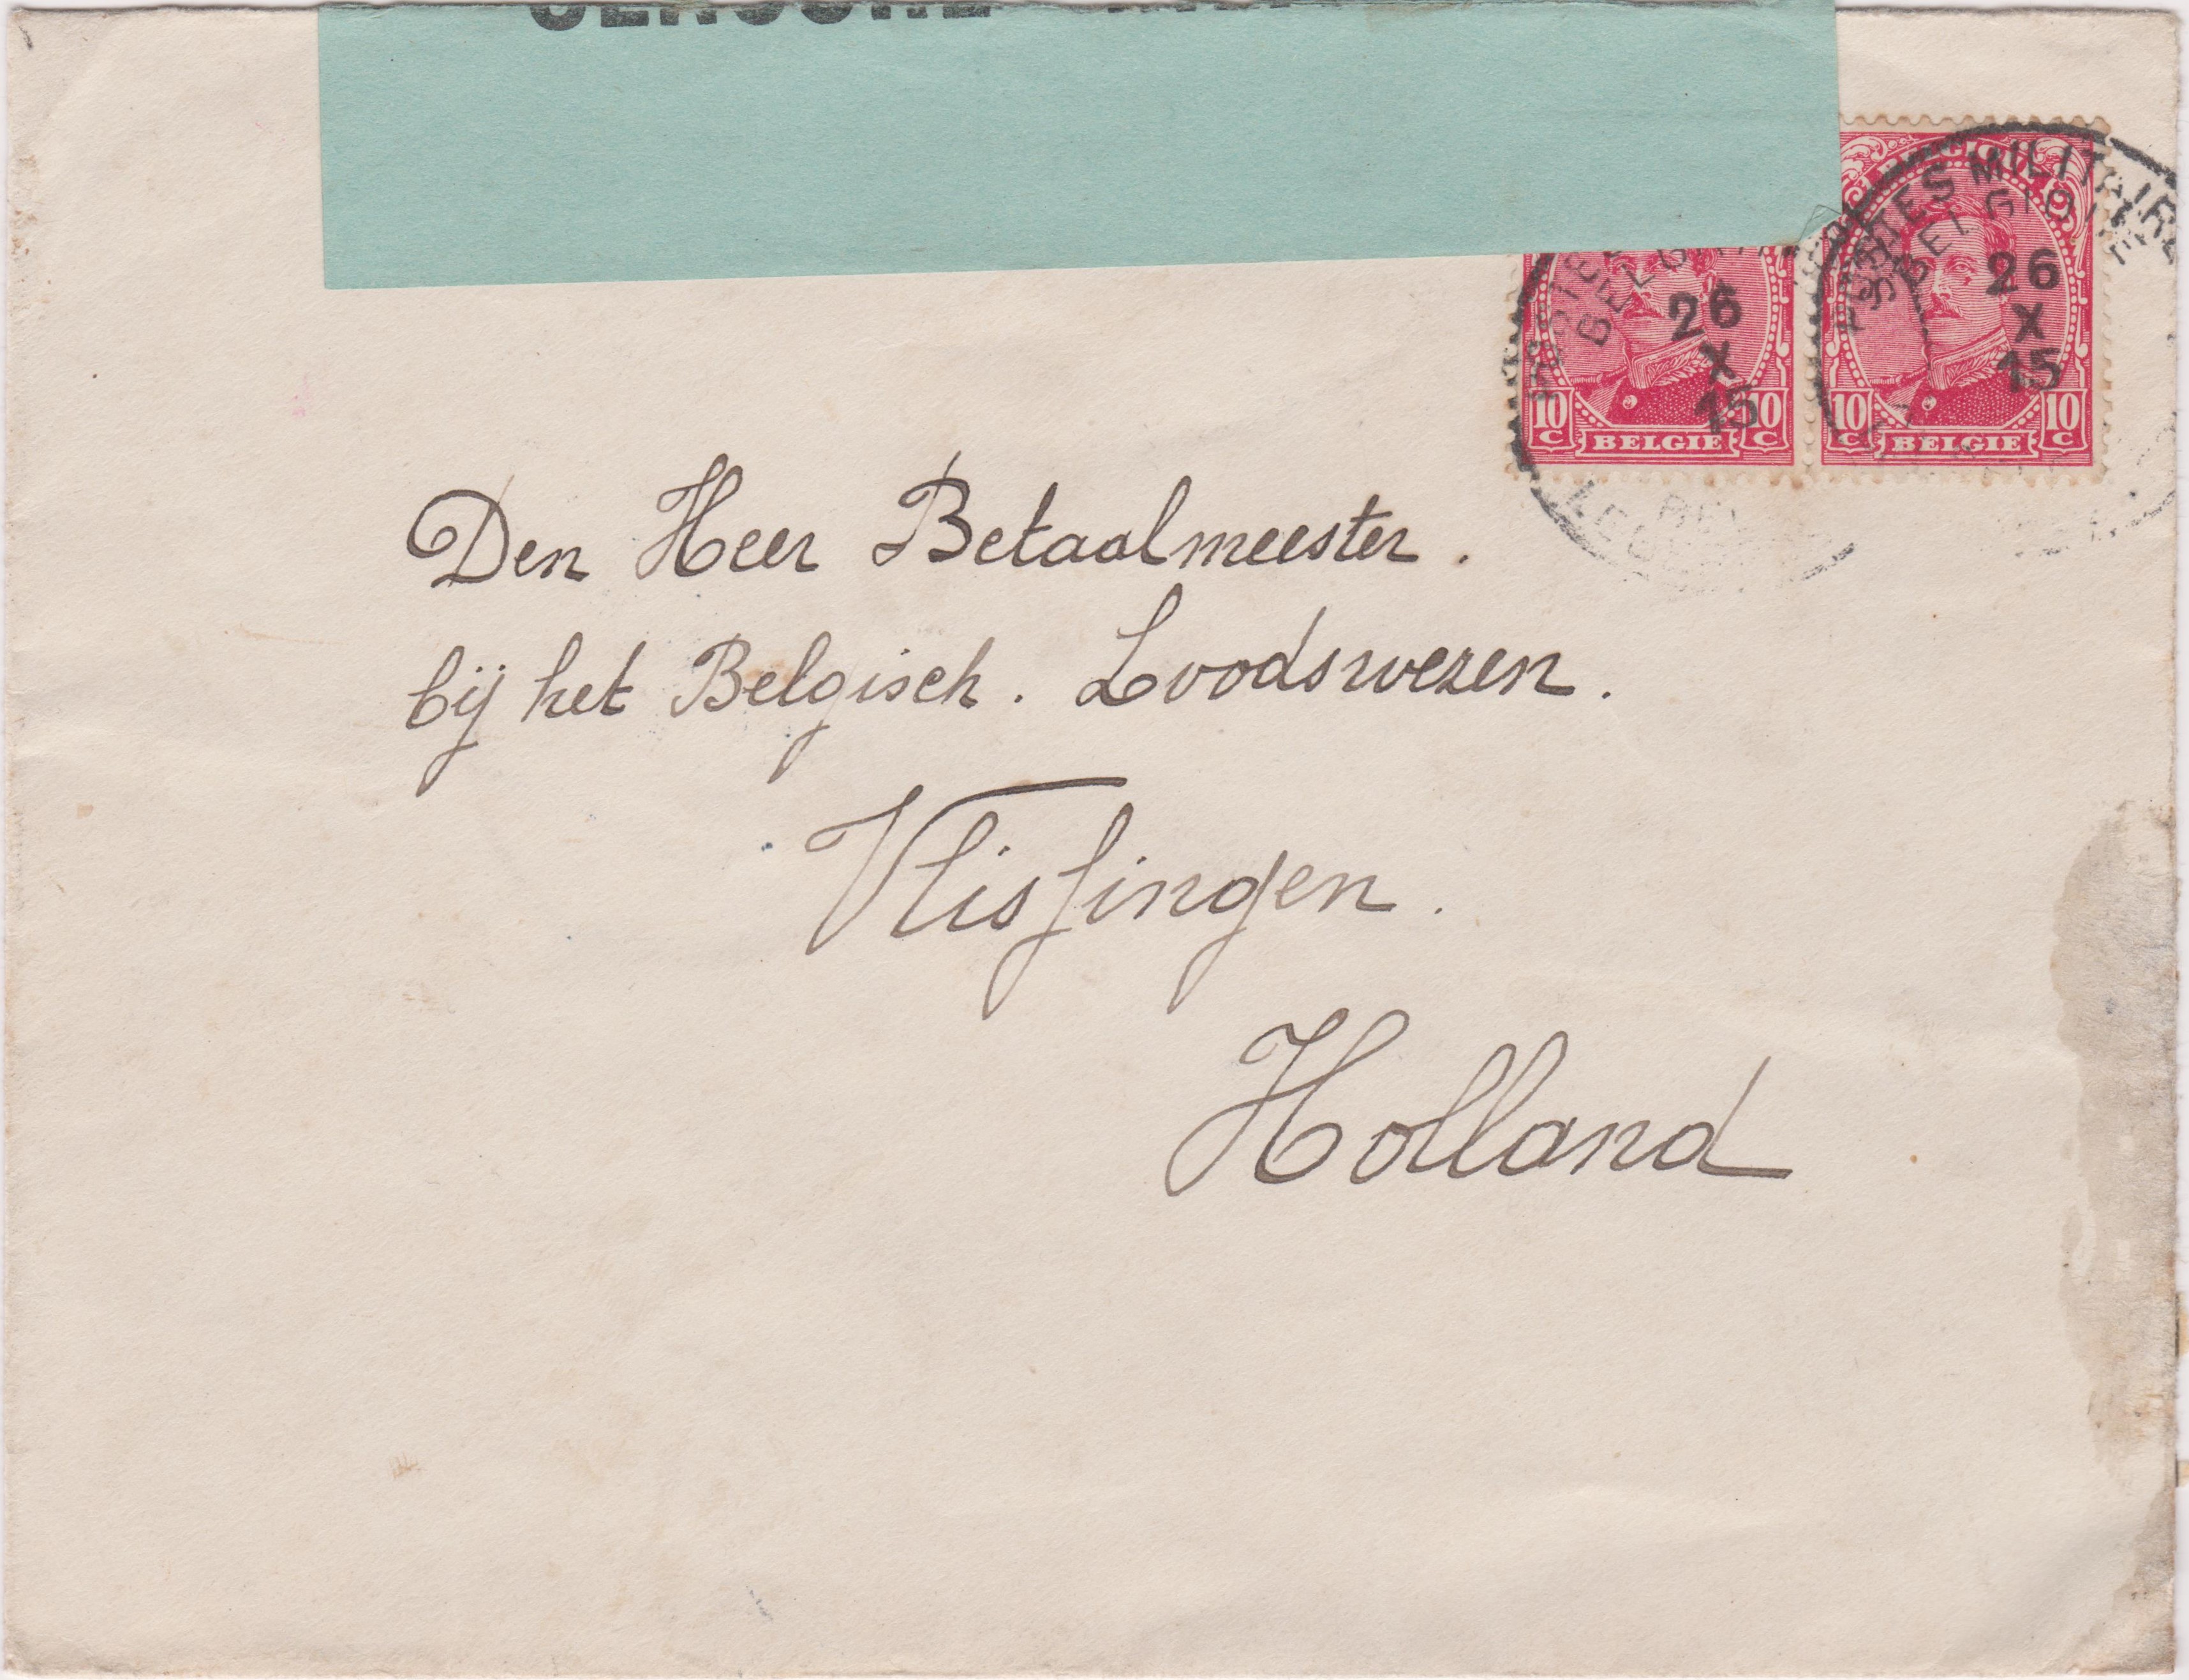 CENSURE
POSTES MILITAIRES
BELGIQUE
26
X
15
10 C BELGIE 10 C
26
X
15
10 C BELGIE 10 C
Den Heer Betaalmeester.
bij het Belgisch. Loodswezen.
Vlissingen.
Holland